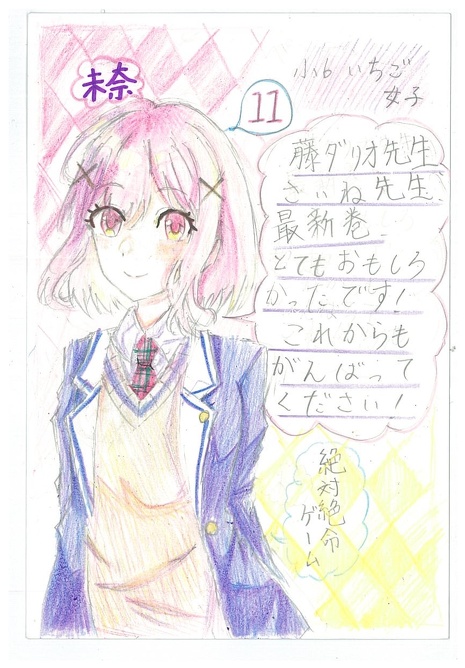 未奈
11
小6 いちご
女子
藤ダリオ先生
さいね先生
最新巻
とてもおもしろ
かったです!
これからも
がんばって
ください!
絶対絶命
ゲーム